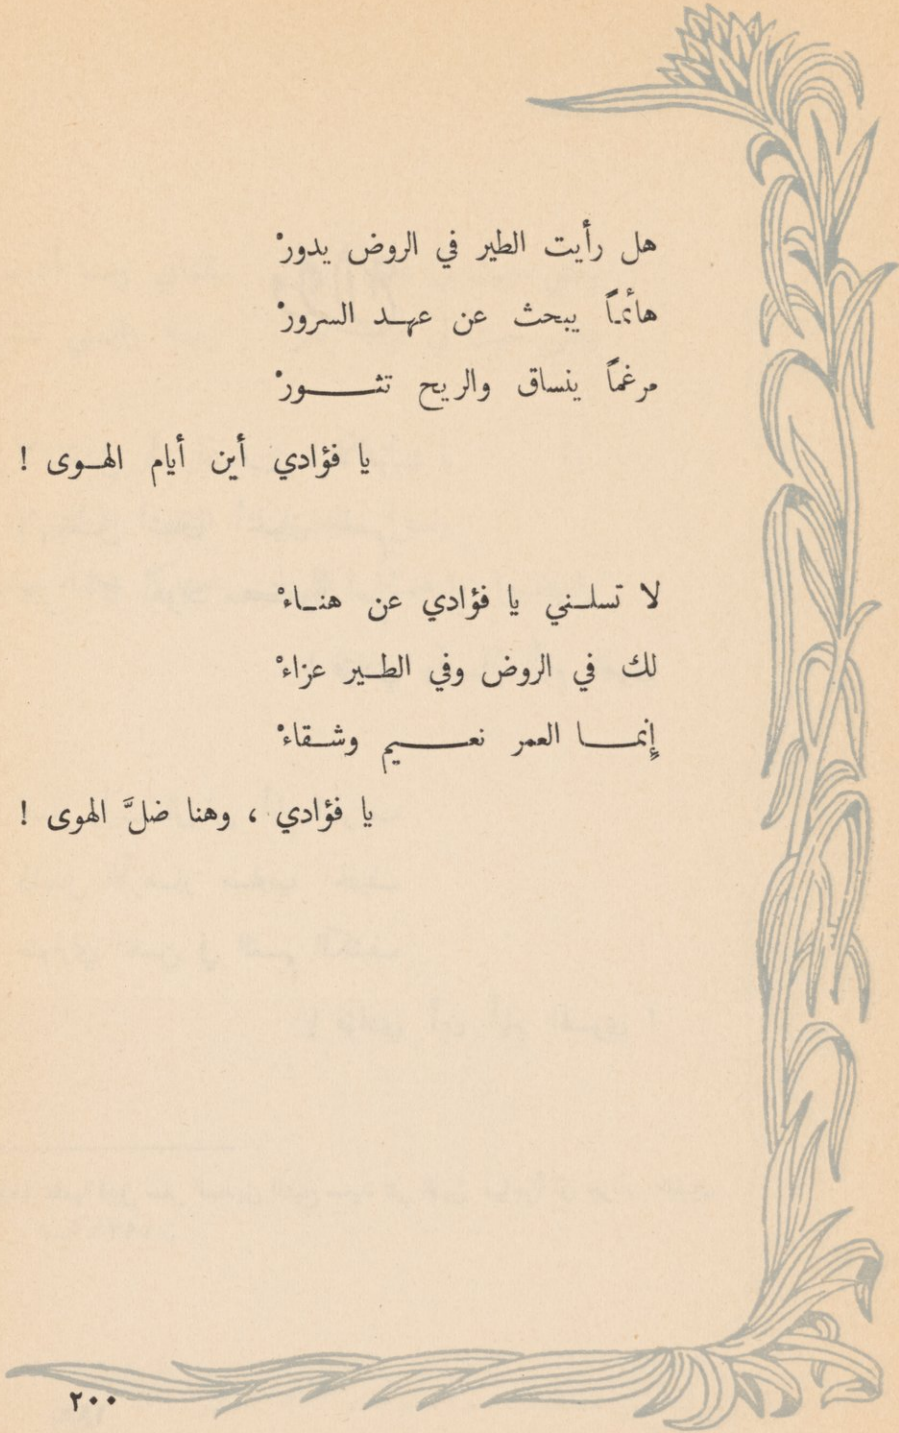 هل رأيت الطير في الروض يدورْ
هائماً يبحث عن عهد السرورْ
مرغماً ينساق والريح تثورْ
يا فؤادي أين أيام الهوى !
لا تسلني يا فؤادي عن هناءْ
لك في الروض وفي الطير عزاءْ
إنما العمر نعيم وشقاءْ
يا فؤادي ، وهنا ضلَّ الهوى !
٢٠٠